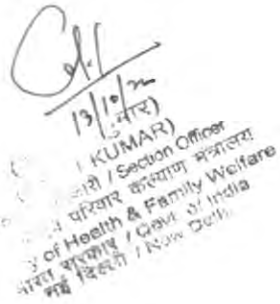 13/10/22
कुमार)
KUMAR)
री / Section Officer
परिवार कल्याण मंत्रालय
y of Health & Family Welfare
भारत सरकार / Govt. of India
नई दिल्ली / New Delhi